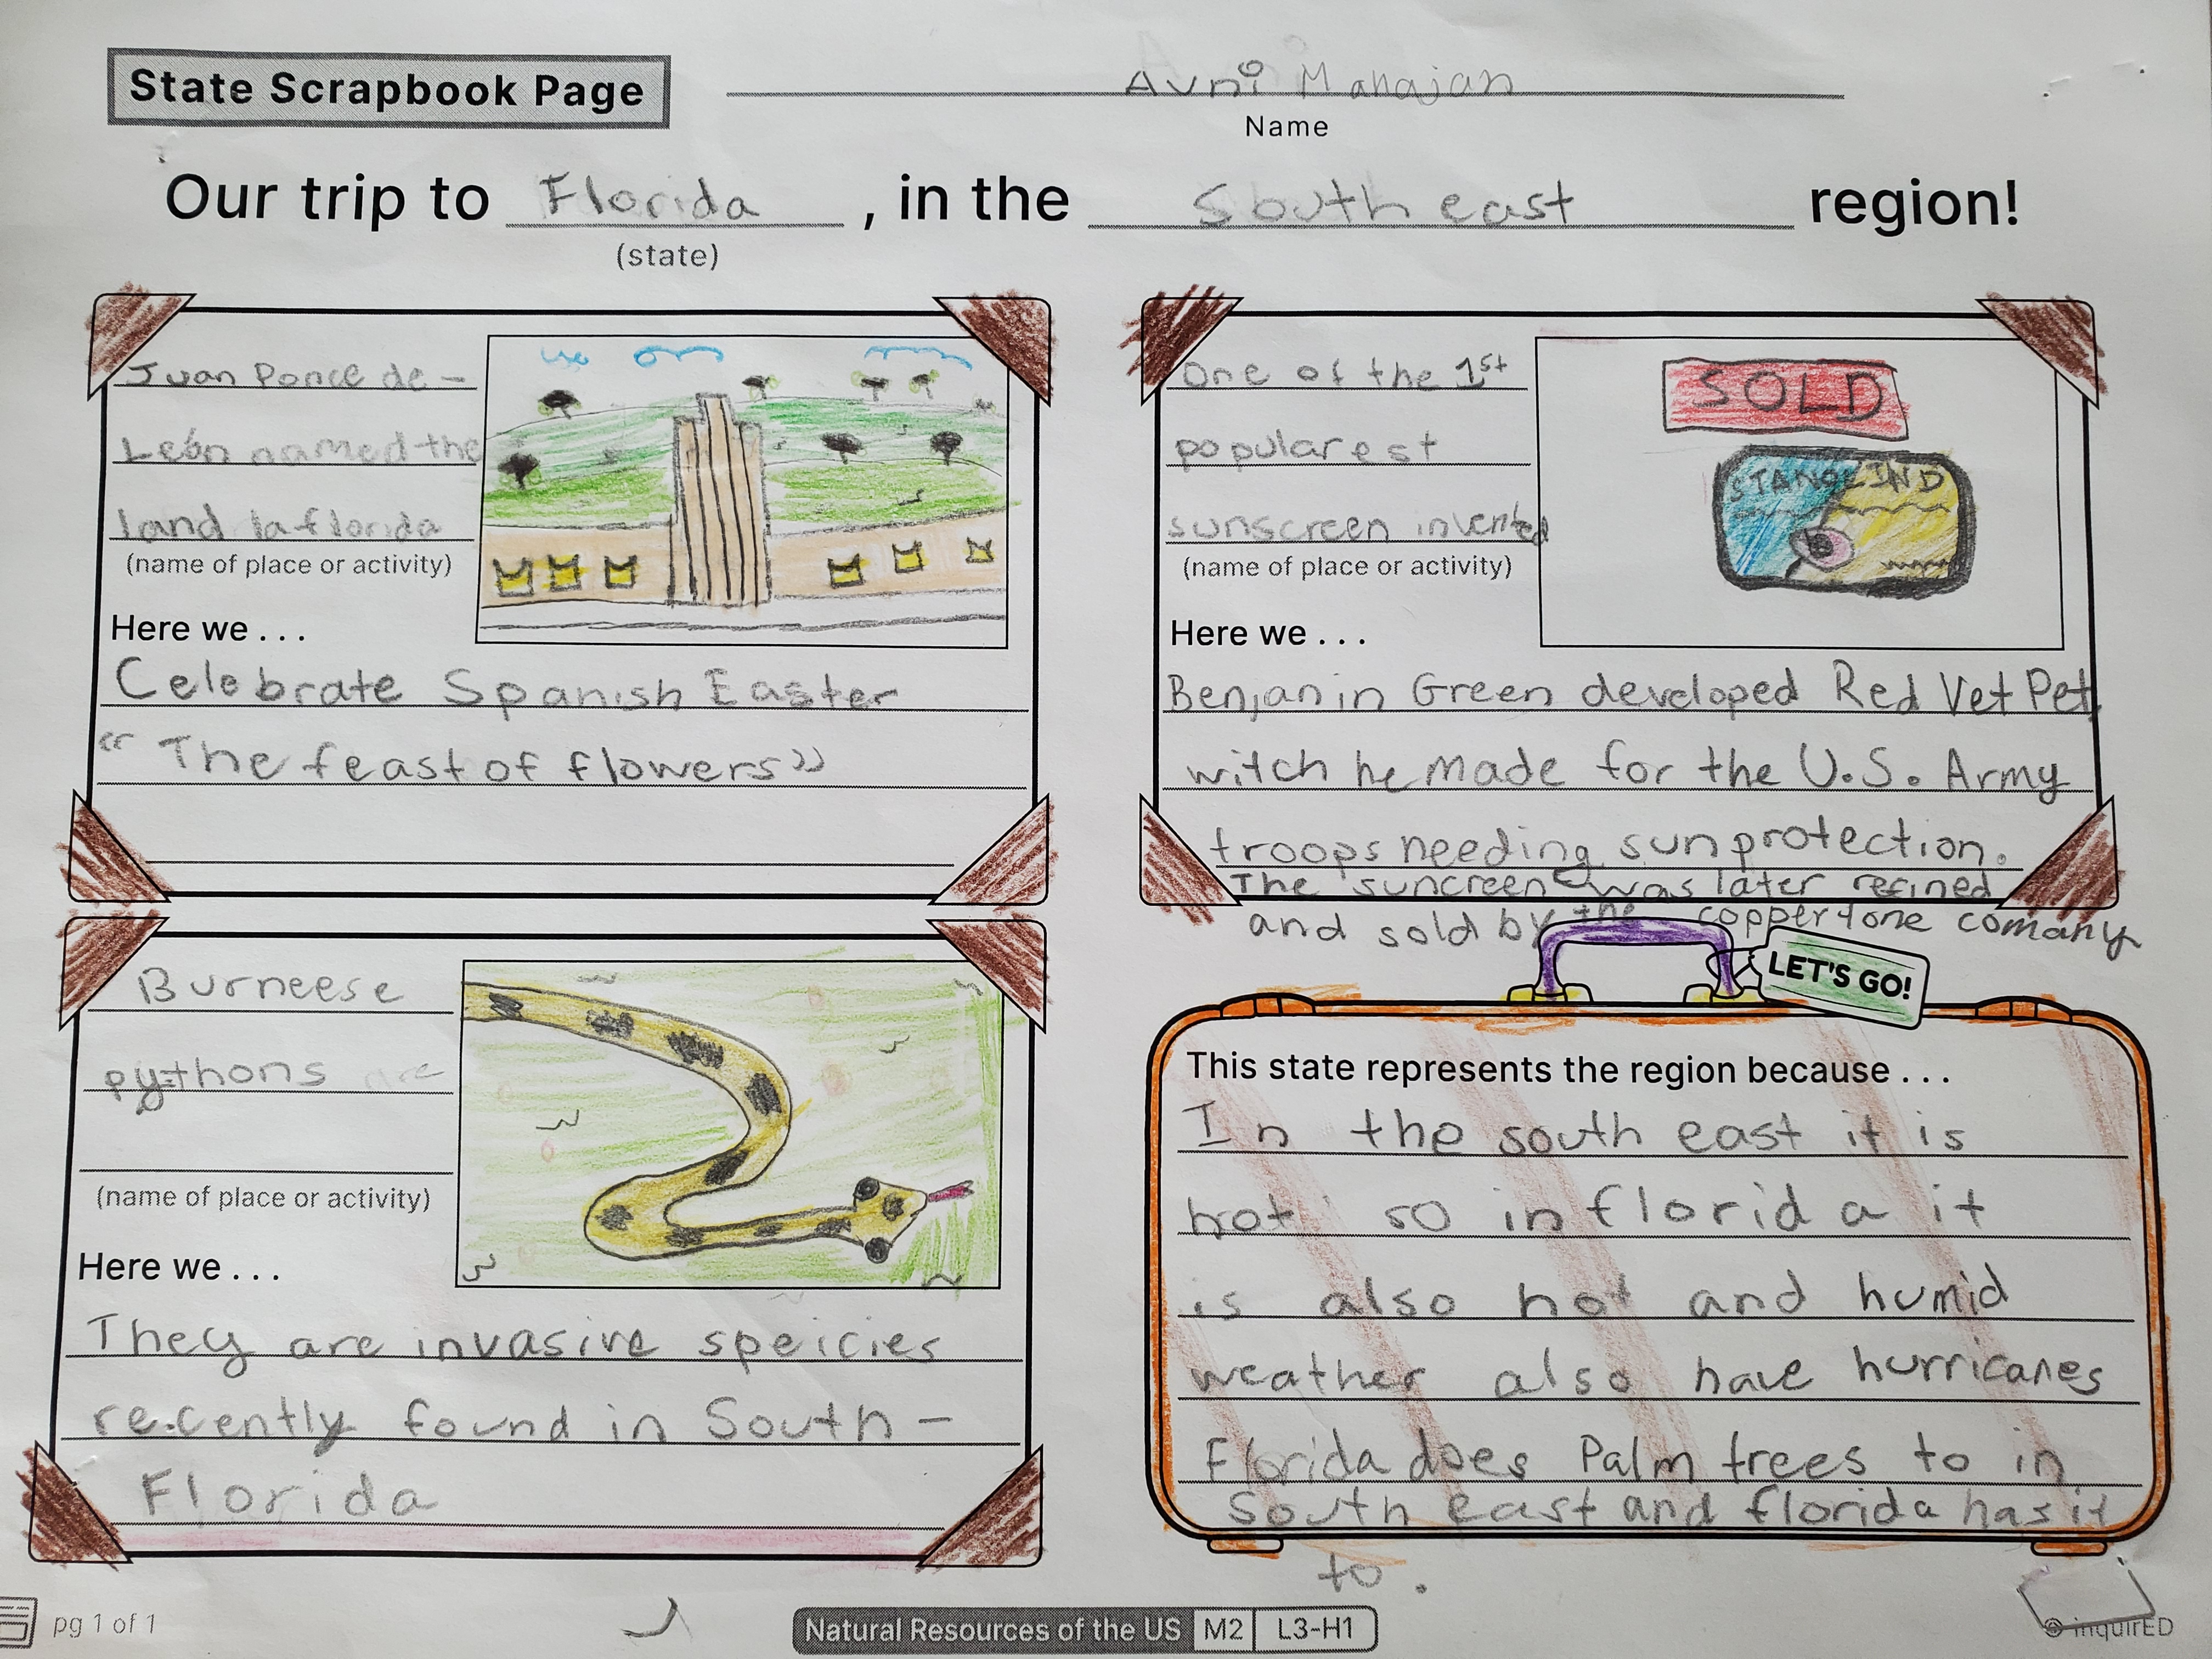 State Scrapbook Page
Avni Mahajan
Name
Our trip to Florida, in the South east region!
(state)
Juan Ponce de -
León named the
land la florida
(name of place or activity)
Here we . . .
Celebrate Spanish Easter
" The feast of flowers"
One of the 1st
popularest
sunscreen invented
(name of place or activity)
SOLD
Here we . . .
Benjanin Green developed Red Vet Pet,
witch he made for the U.S. Army
troops needing sun protection.
The suncreen was later refined
and sold by the coppertone comany
Burneese
pythons are
(name of place or activity)
Here we . . .
They are invasive speicies
recently found in South -
Florida
LET'S GO!
This state represents the region because . . .
In the south east it is
hot so in florida it
is also hot and humid
weather also have hurricanes
Florida does Palm trees to in
South east and florida has it
to.
pg 1 of 1
Natural Resources of the US M2 L3-H1
inquirED